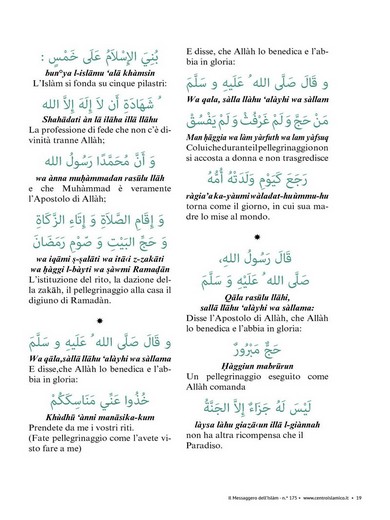 بُنِيَ الإِسْلَامُ عَلَى خَمْسٍ :
bun°ya l-islāmu ‘alā khàmsin
L’Islàm si fonda su cinque pilastri:
شَهَادَةِ أَن لَا إِلَهَ إِلاَّ الله
Shahādati àn lā ilāhu illā llāhu
La professione di fede che non c’è di-
vinità tranne Allàh;
وَ أَنَّ مُحَمَّدًا رَسُولُ الله
wa ànna muḥàmmadan rasulu llāh
e che Muhàmmad è veramente
l’Apostolo di Allàh;
وَ إِقَامِ الصَّلَاةِ وَ إِتَاءِ الزَّكَاةِ
وَ حَجِّ الْبَيْتِ وَ صَوْمِ رَمَضَانَ
wa iqāmi ṣ-ṣalāti wa ità‹i z-zakāti
wa ḥàggi l-bàyti wa ṣàwmi Ramaḍān
L’istituzione del rito, la dazione del-
la zakāh, il pellegrinaggio alla casa il
digiuno di Ramadàn.
*
و قَالَ صَلَّى الله ُ عَلَيْهِ وَ سَلَّمَ
Wa qāla,sàllā llāhu ‘alàyhi wa sàllama
E disse,che Allàh lo benedica e l’ab-
bia in gloria:
خُذُوا عَنِّي مَنَاسِكَكُمْ
Khùdhū ‘ànni manāsika-kum
Prendete da me i vostri riti.
(Fate pellegrinaggio come l’avete vi-
sto fare a me)
E disse, che Allàh lo benedica e l’ab-
bia in gloria:
و قَالَ صَلَّى الله ُ عَلَيْهِ وَ سَلَّمَ
Wa qala, sàlla llàhu ‘alàyhi wa sàllam
مَنْ حَجَّ وَلَمْ يَرْفُثْ وَلَمْ يَفْسُقْ
Man ḥàggia wa làm yàrfuth wa lum yàfsuq
Colui che durante il pellegrinaggio non
si accosta a donna e non trasgredisce
رَجَعَ كَيَوْمِ وَلَدَتْهُ أُمُّهُ
ràgia‘a ka-yàumi wàladat-hu ùmmu-hu
torna come il giorno, in cui sua ma-
dre lo mise al mondo.
*
قَالَ رَسُولُ الله،
صَلَّى الله ُ عَلَيْهِ وَ سَلَّمَ:
Qāla rasūlu llāhi,
sallā llāhu ‘alàyhi wa sàllama:
Disse l’Apostolo di Allàh, che Allàh
lo benedica e l’abbia in gloria:
حَجٌّ مَبْرُورٌ
Ḥàggiun mabrūrun
Un pellegrinaggio eseguito come
Allàh comanda
لَيْسَ لَهُ جَزَاءٌ إِلاَّ الْجَنَّةُ
làysa làhu giazā‹un illā l-giànnah
non ha altra ricompensa che il
Paradiso.
Il Messaggero dell’Islàm - n.° 175 • www.centroislamico.it • 19